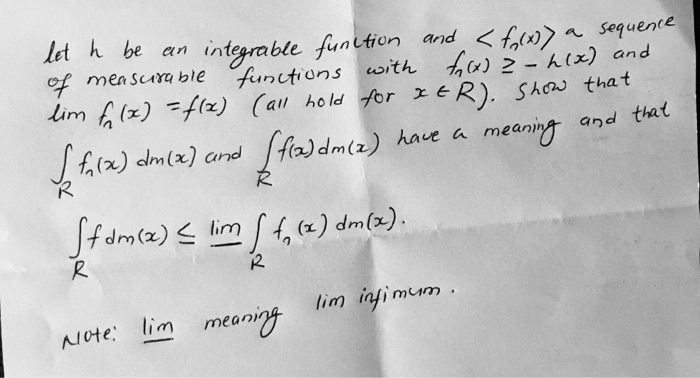 let h be an integrable function and <fₙ(x)> a sequence
of measurable functions with fₙ(x) ≥ -h(x) and
lim fₙ(x) = f(x) (all hold for x ∈ R). Show that
∫_R fₙ(x) dm(x) and ∫_R f(x) dm(x) have a meaning and that
∫_R f dm(x) ≤ l̲i̲m̲ ∫_R fₙ(x) dm(x).
Note: l̲i̲m̲ meaning lim infimum.